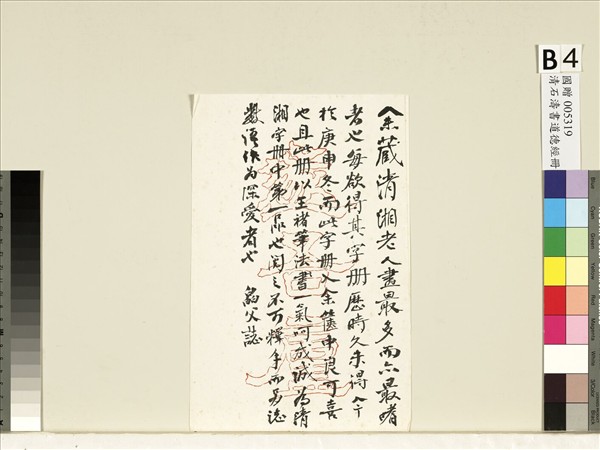 余藏清湘老人畫最多而亦最嗜
者也每欲得其字冊歷時久未得
於庚申冬而此字冊入余篋中良可喜
也且此冊以王褚筆法書一氣呵成誠為清
湘字冊中第一品也閱之不可釋手而另誌
數語作為深愛者也 父誌
B 4
國贈 005319
清石濤書道德經冊
Blue
Cyan
Green
Yellow
Red
Magenta
White
3/Color
Black